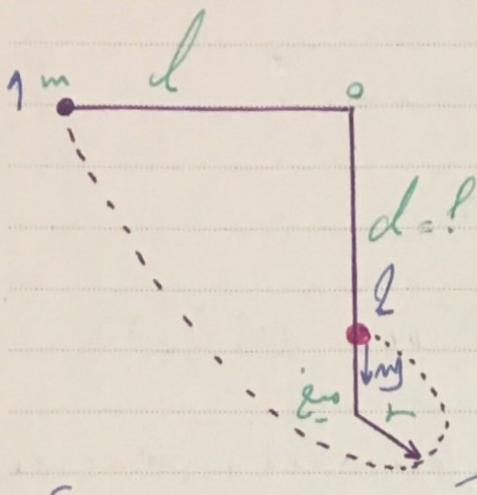 1 m l o
d = ?
2
mg
r